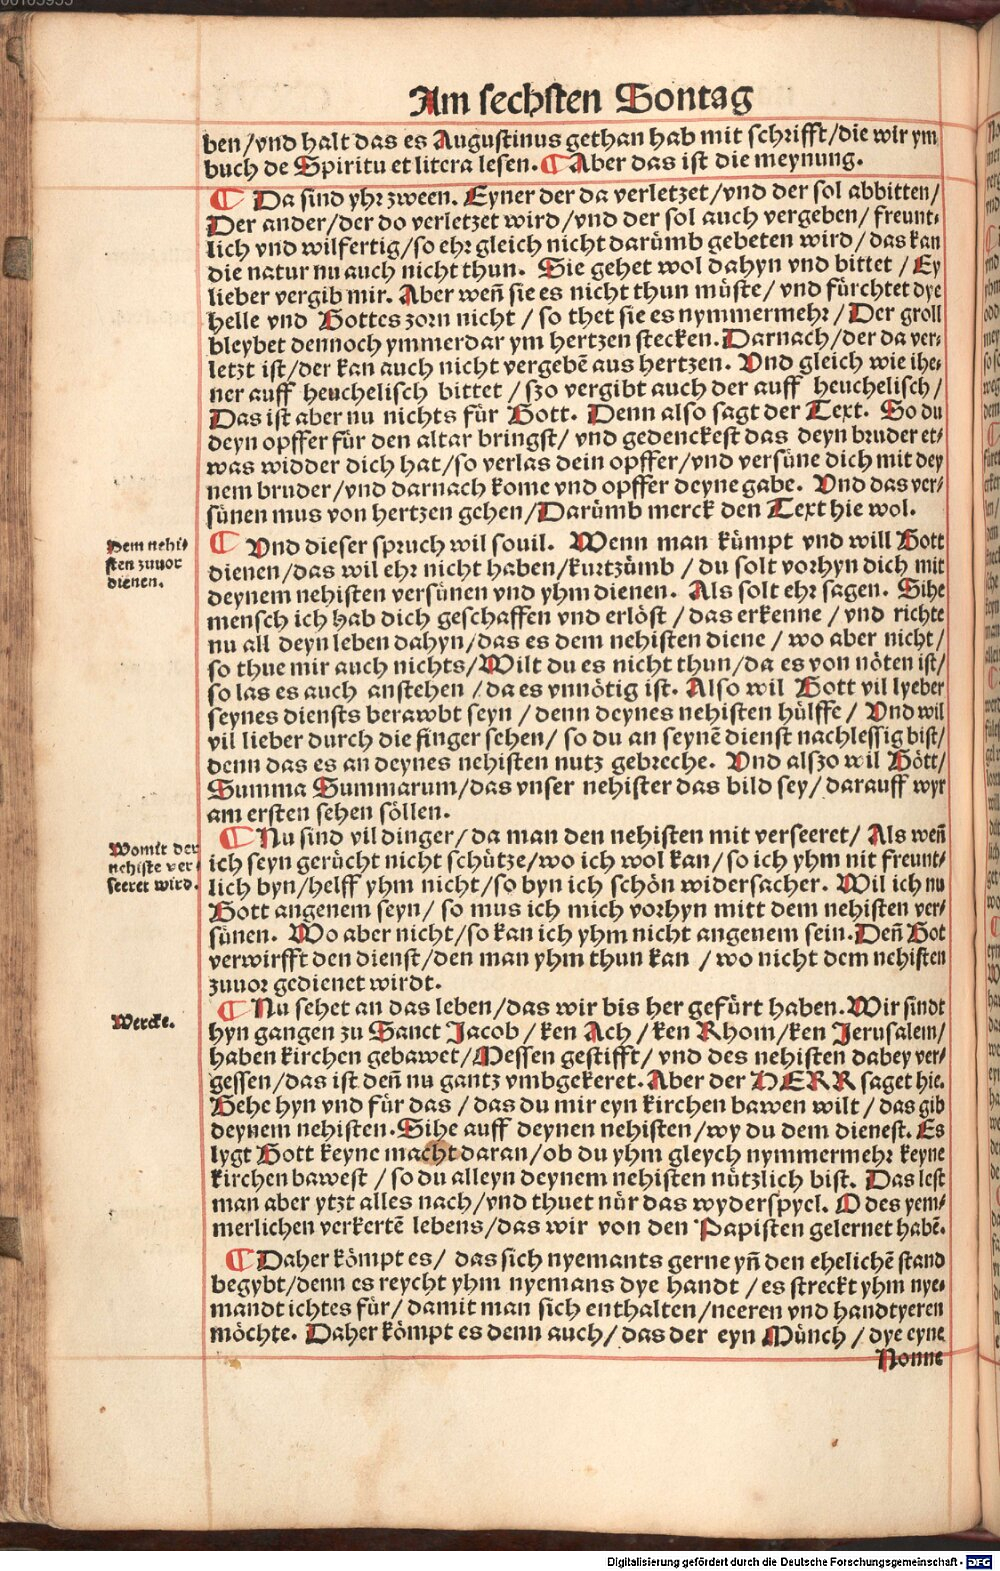 Am sechsten Sontag
ben/vnd halt das es Augustinus gethan hab mit schrifft/die wir ym
buch de Spiritu et litera lesen. ¶ Aber das ist die meynung.
¶ Da sind yhr zween. Eyner der da verletzet/vnd der sol abbitten/
Der ander/der do verletzet wird/vnd der sol auch vergeben/ freunt-
lich vnd wilfertig/so ehr gleich nicht darümb gebeten wird/das kan
die natur nu auch nicht thun. Sie gehet wol dahyn vnd bittet / Ey
lieber vergib mir. Aber weñ sie es nicht thun müste/ vnd fürchtet dye
helle vnd Gottes zorn nicht / so thet sie es nymmermehr/ Der groll
bleybet dennoch ymmerdar ym hertzen stecken. Darnach/der da ver-
letzt ist/der kan auch nicht vergebẽ aus hertzen. Vnd gleich wie ihe-
ner auff heuchelisch bittet / szo vergibt auch der auff heuchelisch/
Das ist aber nu nichts für Gott. Denn also sagt der Text. So du
deyn opffer für den altar bringst/ vnd gedenckest das deyn bruder et-
was widder dich hat/so verlas dein opffer/vnd versüne dich mit dey
nem bruder/vnd darnach kome vnd opffer deyne gabe. Vnd das ver-
sünen mus von hertzen gehen/Darümb merck den Text hie wol.
Dem nehi-
sten zuuor
dienen.
¶ Vnd dieser spruch wil souil. Wenn man kümpt vnd will Gott
dienen/das wil ehr nicht haben/kurtzümb / du solt vorhyn dich mit
deynem nehisten versünen vnd yhm dienen. Als solt ehr sagen. Sihe
mensch ich hab dich geschaffen vnd erlöst / das erkenne / vnd richte
nu all deyn leben dahyn/das es dem nehisten diene / wo aber nicht/
so thue mir auch nichts/Wilt du es nicht thun/da es von nöten ist/
so las es auch anstehen /da es vnnötig ist. Also wil Gott vil lyeber
seynes diensts berawbt seyn / denn deynes nehisten hülffe/ Vnd wil
vil lieber durch die finger sehen/ so du an seynẽ dienst nachlessig bist/
denn das es an deynes nehisten nutz gebreche. Vnd alszo wil Gött/
Summa Summarum/das vnser nehister das bild sey/ darauff wyr
am ersten sehen söllen.
Womit der
nehiste ver-
seeret wird.
¶ Nu sind vil dinger/ da man den nehisten mit verseeret/ Als weñ
ich seyn gerücht nicht schütze/wo ich wol kan/so ich yhm nit freunt-
lich byn/helff yhm nicht/so byn ich schön widersacher. Wil ich nu
Gott angenem seyn/ so mus ich mich vorhyn mitt dem nehisten ver-
sünen. Wo aber nicht/so kan ich yhm nicht angenem sein. Deñ Got
verwirfft den dienst/den man yhm thun kan / wo nicht dem nehisten
zuuor gedienet wirdt.
Wercke.
¶ Nu sehet an das leben/das wir bis her gefürt haben. Wir sindt
hyn gangen zu Sanct Jacob/ken Ach/ken Rhom/ken Jerusalem/
haben kirchen gebawet/Messen gestifft/ vnd des nehisten dabey ver-
gessen/das ist deñ nu gantz vmbgekeret. Aber der HERR saget hie.
Gehe hyn vnd für das / das du mir eyn kirchen bawen wilt / das gib
deynem nehisten. Sihe auff deynen nehisten/wy du dem dienest. Es
lygt Gott keyne macht daran/ob du yhm gleych nymmermehr keyne
kirchen bawest / so du alleyn deynem nehisten nützlich bist. Das lest
man aber ytzt alles nach/vnd thuet nür das wyderspyel. O des yem-
merlichen verkertẽ lebens/das wir von den Papisten gelernet habẽ.
¶ Daher kömpt es/ das sich nyemants gerne yñ den ehelichẽ stand
begybt/denn es reycht yhm nyemans dye handt / es streckt yhm nye-
mandt ichtes für/ damit man sich enthalten/neeren vnd handtyeren
möchte. Daher kömpt es denn auch/das der eyn Münch / dye eyne
Nonne
Digitalisierung gefördert durch die Deutsche Forschungsgemeinschaft - DFG